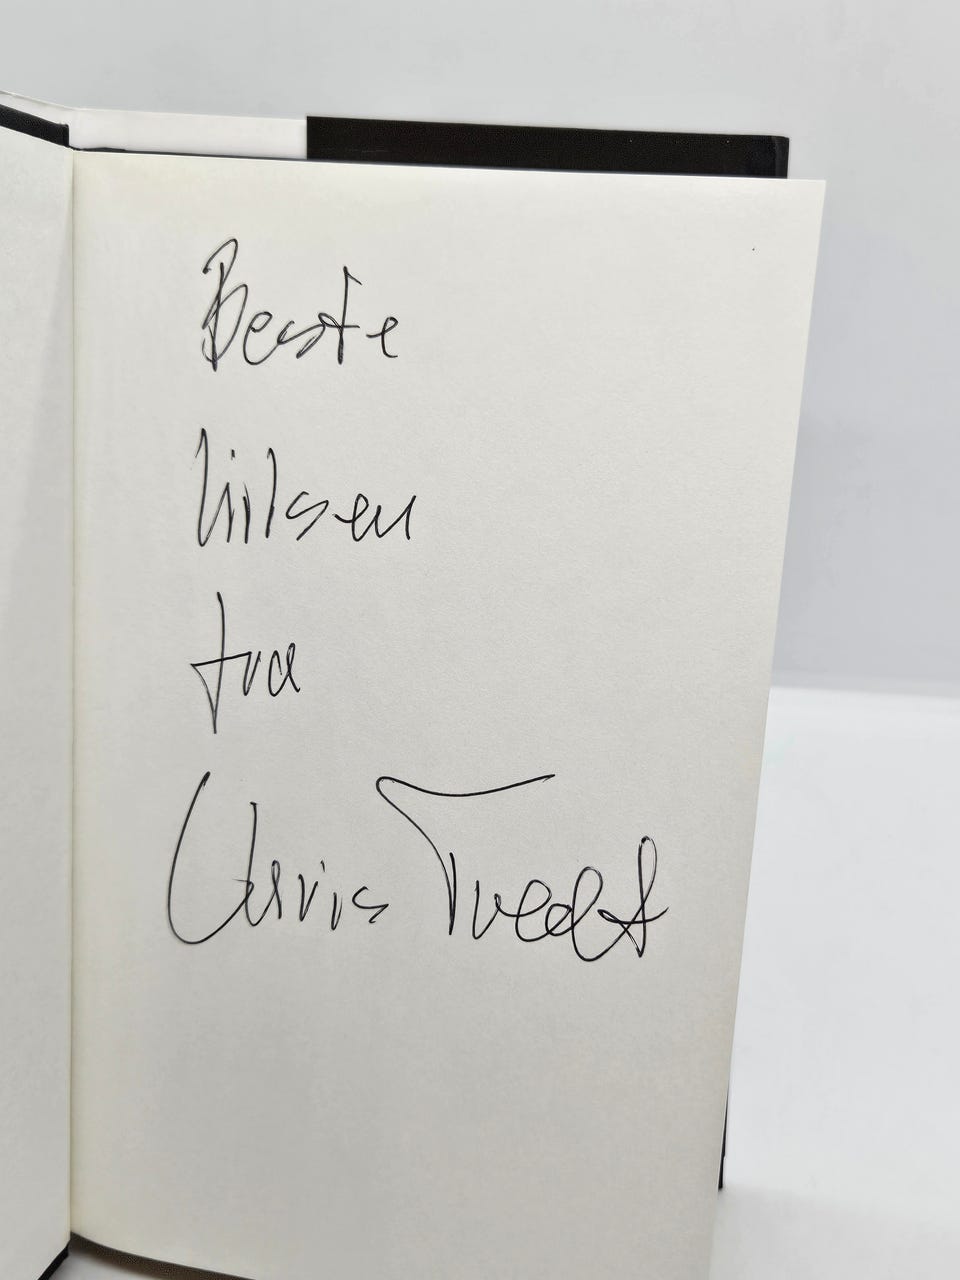 Beste
hilsen
fra
Chris Tvedt